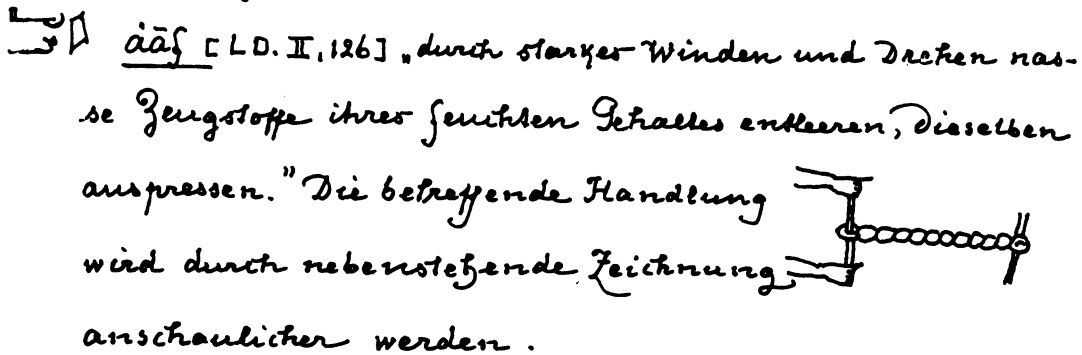 ȧāf [LD. II, 126] „durch starkes Winden und Drehen nas-
se Zeugstoffe ihres feuchten Gehaltes entleeren, dieselben
auspressen.” Die betreffende Handlung
wird durch nebenstehende Zeichnung
anschaulicher werden.